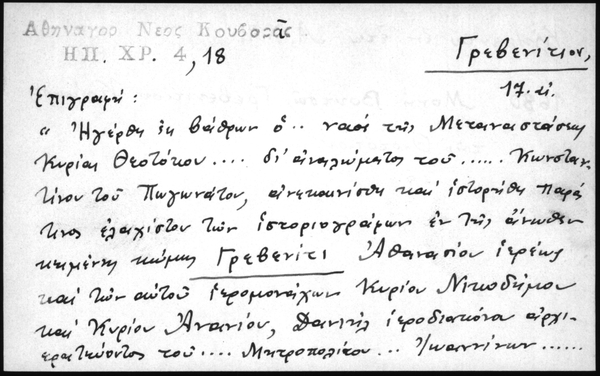 Αθηναγορ Νεος Κουβαρᾶς
ΗΠ. ΧΡ. 4, 18
Γρεβενίτιον,
17. αἰ.
Ἐπιγραφή:
" Ἠγέρθη ἐκ βάθρων ὁ.. ναός τῆς Μεταναστάσεως
Κυρίας Θεοτόκου.... δι' ἀναλώματος τοῦ...... Κωνσταν
τίνου τοῦ Πωγωνάτου, ἀνεκαινίσθη καί ἱστορήθη παρά
τινος ἐλαχίστου τῶν ἱστοριογράφων ἐν τῆς ἄνωθεν
κειμένης κώμης Γρεβενίτι Ἀθανασίου ἱερέως
καί τῶν αὐτοῦ ἱερομονάχων Κυρίου Νικοδήμου
καί Κυρίου Ἀνανίου, Δανιήλ ἱεροδιακόνα ἀρχι-
ερατεύοντος τοῦ.... Μητροπολίτου... Ἰωαννίνων ......